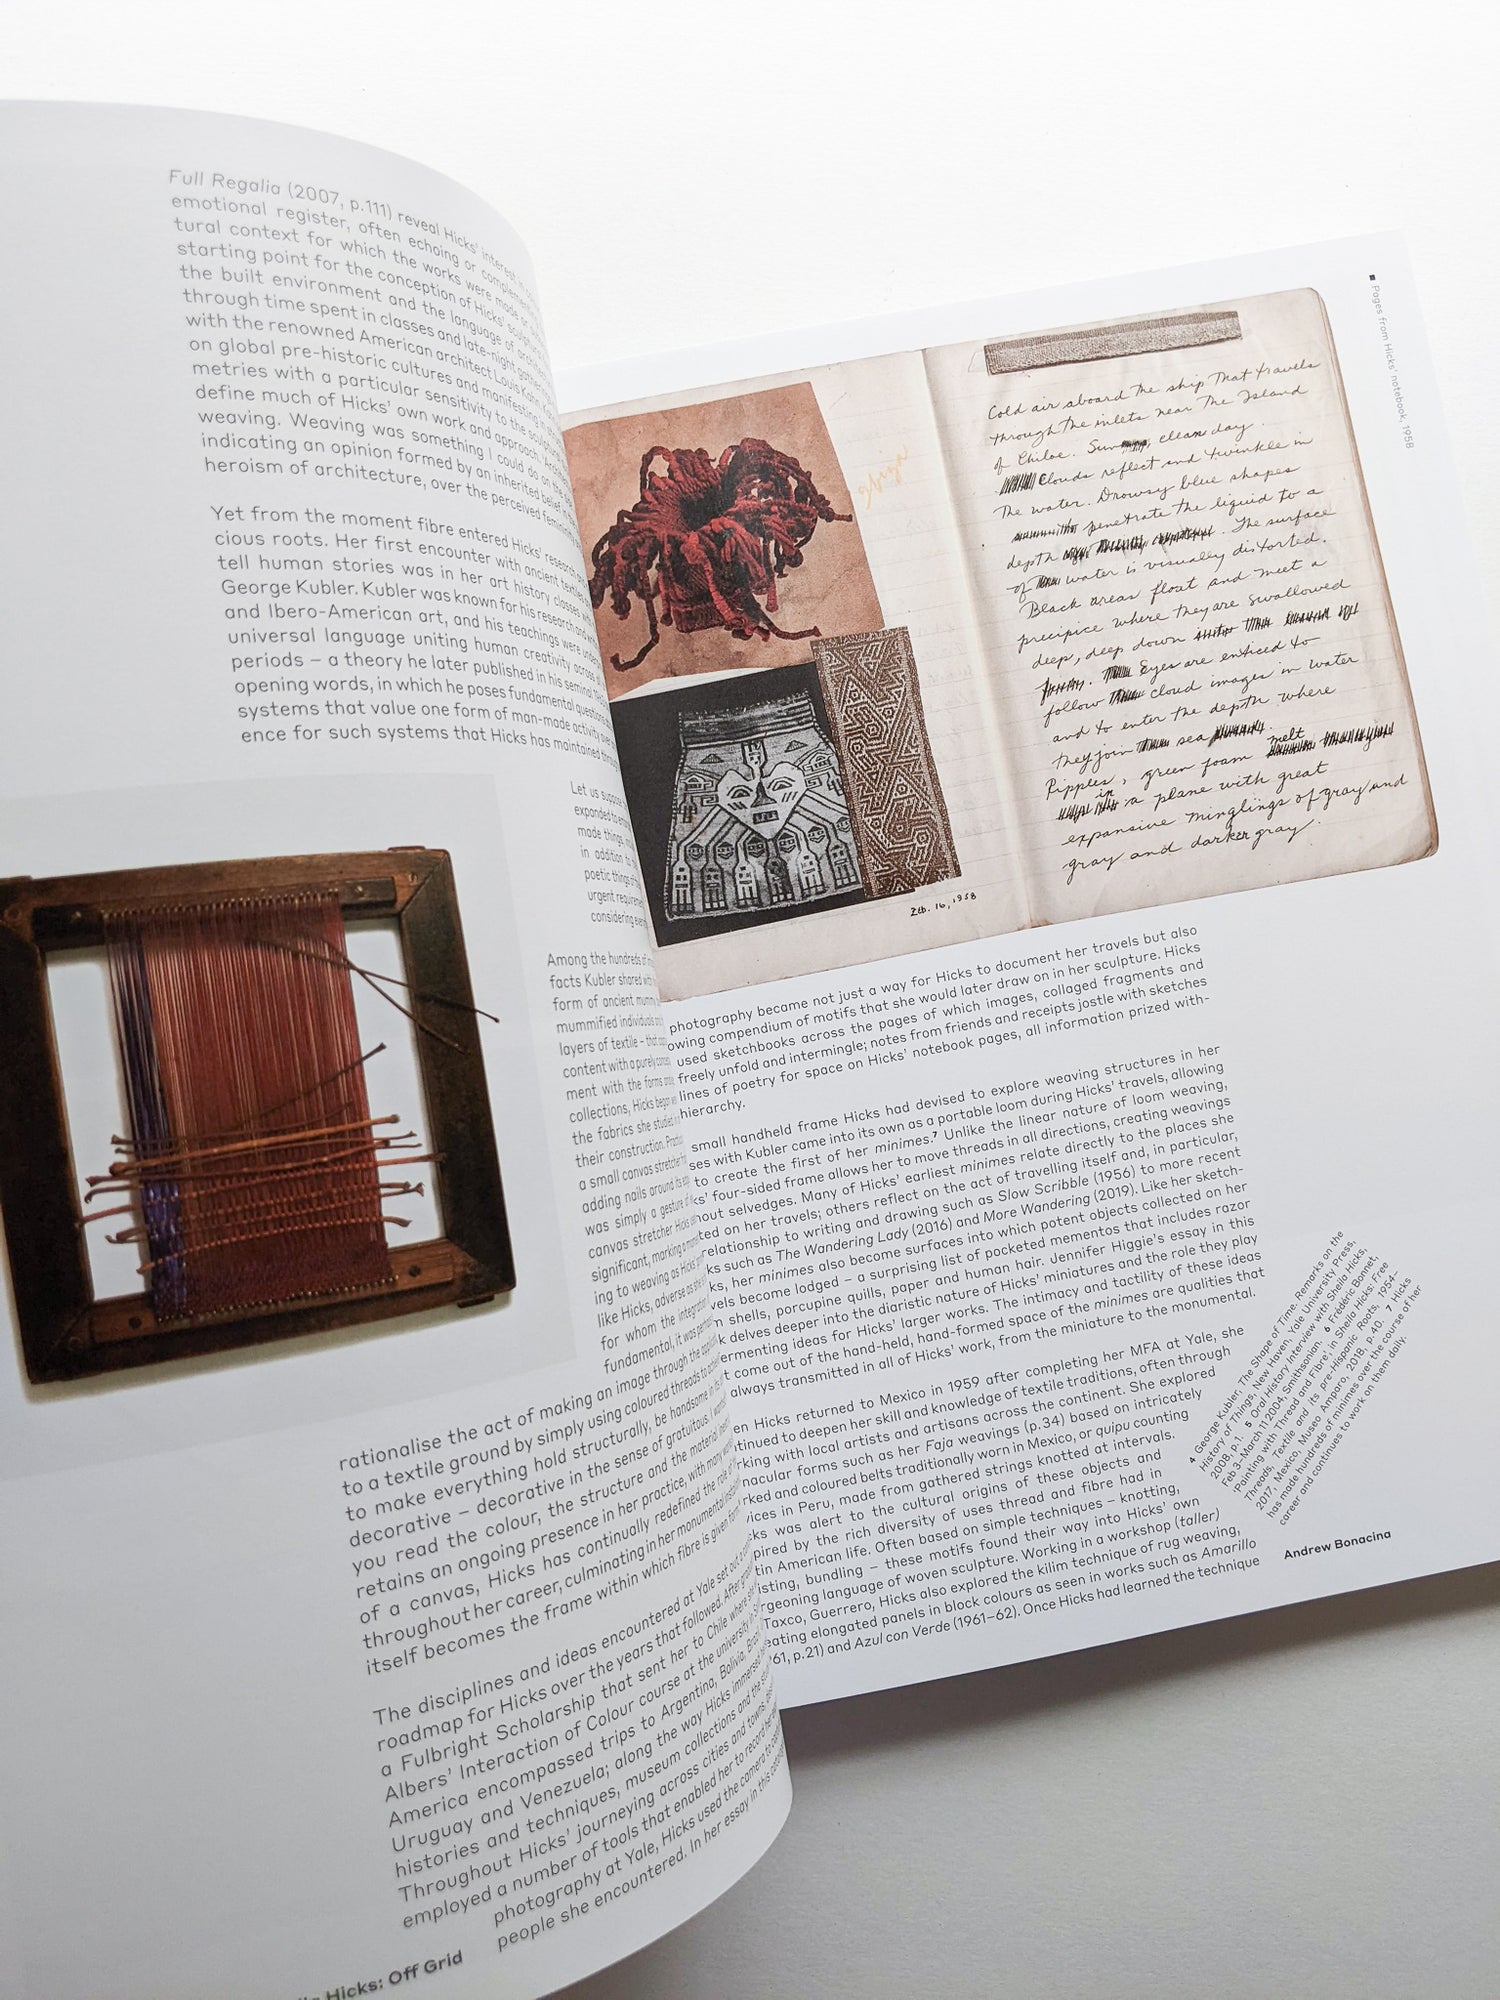 Full Regalia (2007, p.111) reveal Hicks' interest in
emotional register, often echoing or
tural context for which the works were made or
starting point for the conception of Hicks'
the built environment and the language of
through time spent in classes and late-night
with the renowned American architect Louis Kahn.
on global pre-historic cultures and manifesting in
metries with a particular sensitivity to the
define much of Hicks' own work and approach.
weaving. Weaving was something I could do on the
indicating an opinion formed by an inherited belief
heroism of architecture, over the perceived
Yet from the moment fibre entered Hicks'
cious roots. Her first encounter with ancient textiles
tell human stories was in her art history classes with
George Kubler. Kubler was known for his research and
and Ibero-American art, and his teachings were
universal language uniting human creativity across
periods – a theory he later published in his seminal
opening words, in which he poses fundamental questions
systems that value one form of man-made activity over
ence for such systems that Hicks has maintained
Let us suppose
expanded to
made things,
in addition to
poetic things of
urgent
considering
Among the hundreds of
facts Kubler shared with
form of ancient mummy
mummified individuals
layers of textile – that
content with a purely
ment with the forms
collections, Hicks began
the fabrics she studied
their construction.
a small canvas stretcher
adding nails around its
was simply a gesture of
canvas stretcher Hicks
significant, marking a
ing to weaving as Hicks
like Hicks, adverse as she
for whom the integration
fundamental, it was
rationalise the act of making an image through the
to a textile ground by simply using coloured threads to
to make everything hold structurally, be handsome in its
decorative – decorative in the sense of gratuitous. I
you read the colour, the structure and the material
retains an ongoing presence in her practice, with many
of a canvas, Hicks has continually redefined the role of
throughout her career, culminating in her monumental
itself becomes the frame within which fibre is given
The disciplines and ideas encountered at Yale set out a
roadmap for Hicks over the years that followed. After
a Fulbright Scholarship that sent her to Chile where she
Albers' Interaction of Colour course at the university in
America encompassed trips to Argentina, Bolivia, Brazil,
Uruguay and Venezuela; along the way Hicks immersed
histories and techniques, museum collections and the
Throughout Hicks' journeying across cities and towns,
employed a number of tools that enabled her to record her
photography at Yale, Hicks used the camera to
people she encountered. In her essay in this
Hicks: Off Grid
■ Pages from Hicks' notebook, 1958
Ibiza
Feb. 16, 1958
Cold air aboard the ship that travels
through the inlets near the Island
of Chiloe. clean day.
Clouds reflect and twinkle in
the water. Drowsy blue shapes
penetrate the liquid to a
depth . The surface
of water is visually distorted.
Black areas float and meet a
precipice where they are swallowed
deep, deep down
Eyes are enticed to
follow cloud images in water
and to enter the depth where
they join sea
melt
Ripples, green foam
in a plane with great
expansive minglings of gray and
gray and darker gray.
photography became not just a way for Hicks to document her travels but also
owing compendium of motifs that she would later draw on in her sculpture. Hicks
used sketchbooks across the pages of which images, collaged fragments and
freely unfold and intermingle; notes from friends and receipts jostle with sketches
lines of poetry for space on Hicks' notebook pages, all information prized with-
hierarchy.
small handheld frame Hicks had devised to explore weaving structures in her
ses with Kubler came into its own as a portable loom during Hicks' travels, allowing
to create the first of her minimes.7 Unlike the linear nature of loom weaving,
ks' four-sided frame allows her to move threads in all directions, creating weavings
out selvedges. Many of Hicks' earliest minimes relate directly to the places she
ted on her travels; others reflect on the act of travelling itself and, in particular,
relationship to writing and drawing such as Slow Scribble (1956) to more recent
ks such as The Wandering Lady (2016) and More Wandering (2019). Like her sketch-
ks, her minimes also become surfaces into which potent objects collected on her
vels become lodged – a surprising list of pocketed mementos that includes razor
m shells, porcupine quills, paper and human hair. Jennifer Higgie's essay in this
k delves deeper into the diaristic nature of Hicks' miniatures and the role they play
ermenting ideas for Hicks' larger works. The intimacy and tactility of these ideas
t come out of the hand-held, hand-formed space of the minimes are qualities that
always transmitted in all of Hicks' work, from the miniature to the monumental.
en Hicks returned to Mexico in 1959 after completing her MFA at Yale, she
tinued to deepen her skill and knowledge of textile traditions, often through
rking with local artists and artisans across the continent. She explored
nacular forms such as her Faja weavings (p.34) based on intricately
rked and coloured belts traditionally worn in Mexico, or quipu counting
vices in Peru, made from gathered strings knotted at intervals.
ks was alert to the cultural origins of these objects and
pired by the rich diversity of uses thread and fibre had in
tin American life. Often based on simple techniques – knotting,
isting, bundling – these motifs found their way into Hicks' own
rgeoning language of woven sculpture. Working in a workshop (taller)
Taxco, Guerrero, Hicks also explored the kilim technique of rug weaving,
eating elongated panels in block colours as seen in works such as Amarillo
'61, p.21) and Azul con Verde (1961–62). Once Hicks had learned the technique
4 George Kubler, The Shape of Time. Remarks on the
History of Things, New Haven, Yale University Press,
2008, p.1. 5 Oral History Interview with Sheila Hicks,
Feb 3–March 11 2004, Smithsonian. 6 Frédéric Bonnet,
'Painting with Thread and Fibre', in Sheila Hicks: Free
Threads, Textile and its pre-Hispanic Roots, 1954–
2017, Mexico, Museo Amparo, 2018, p. 40. 7 Hicks
has made hundreds of minimes over the course of her
career and continues to work on them daily.
Andrew Bonacina